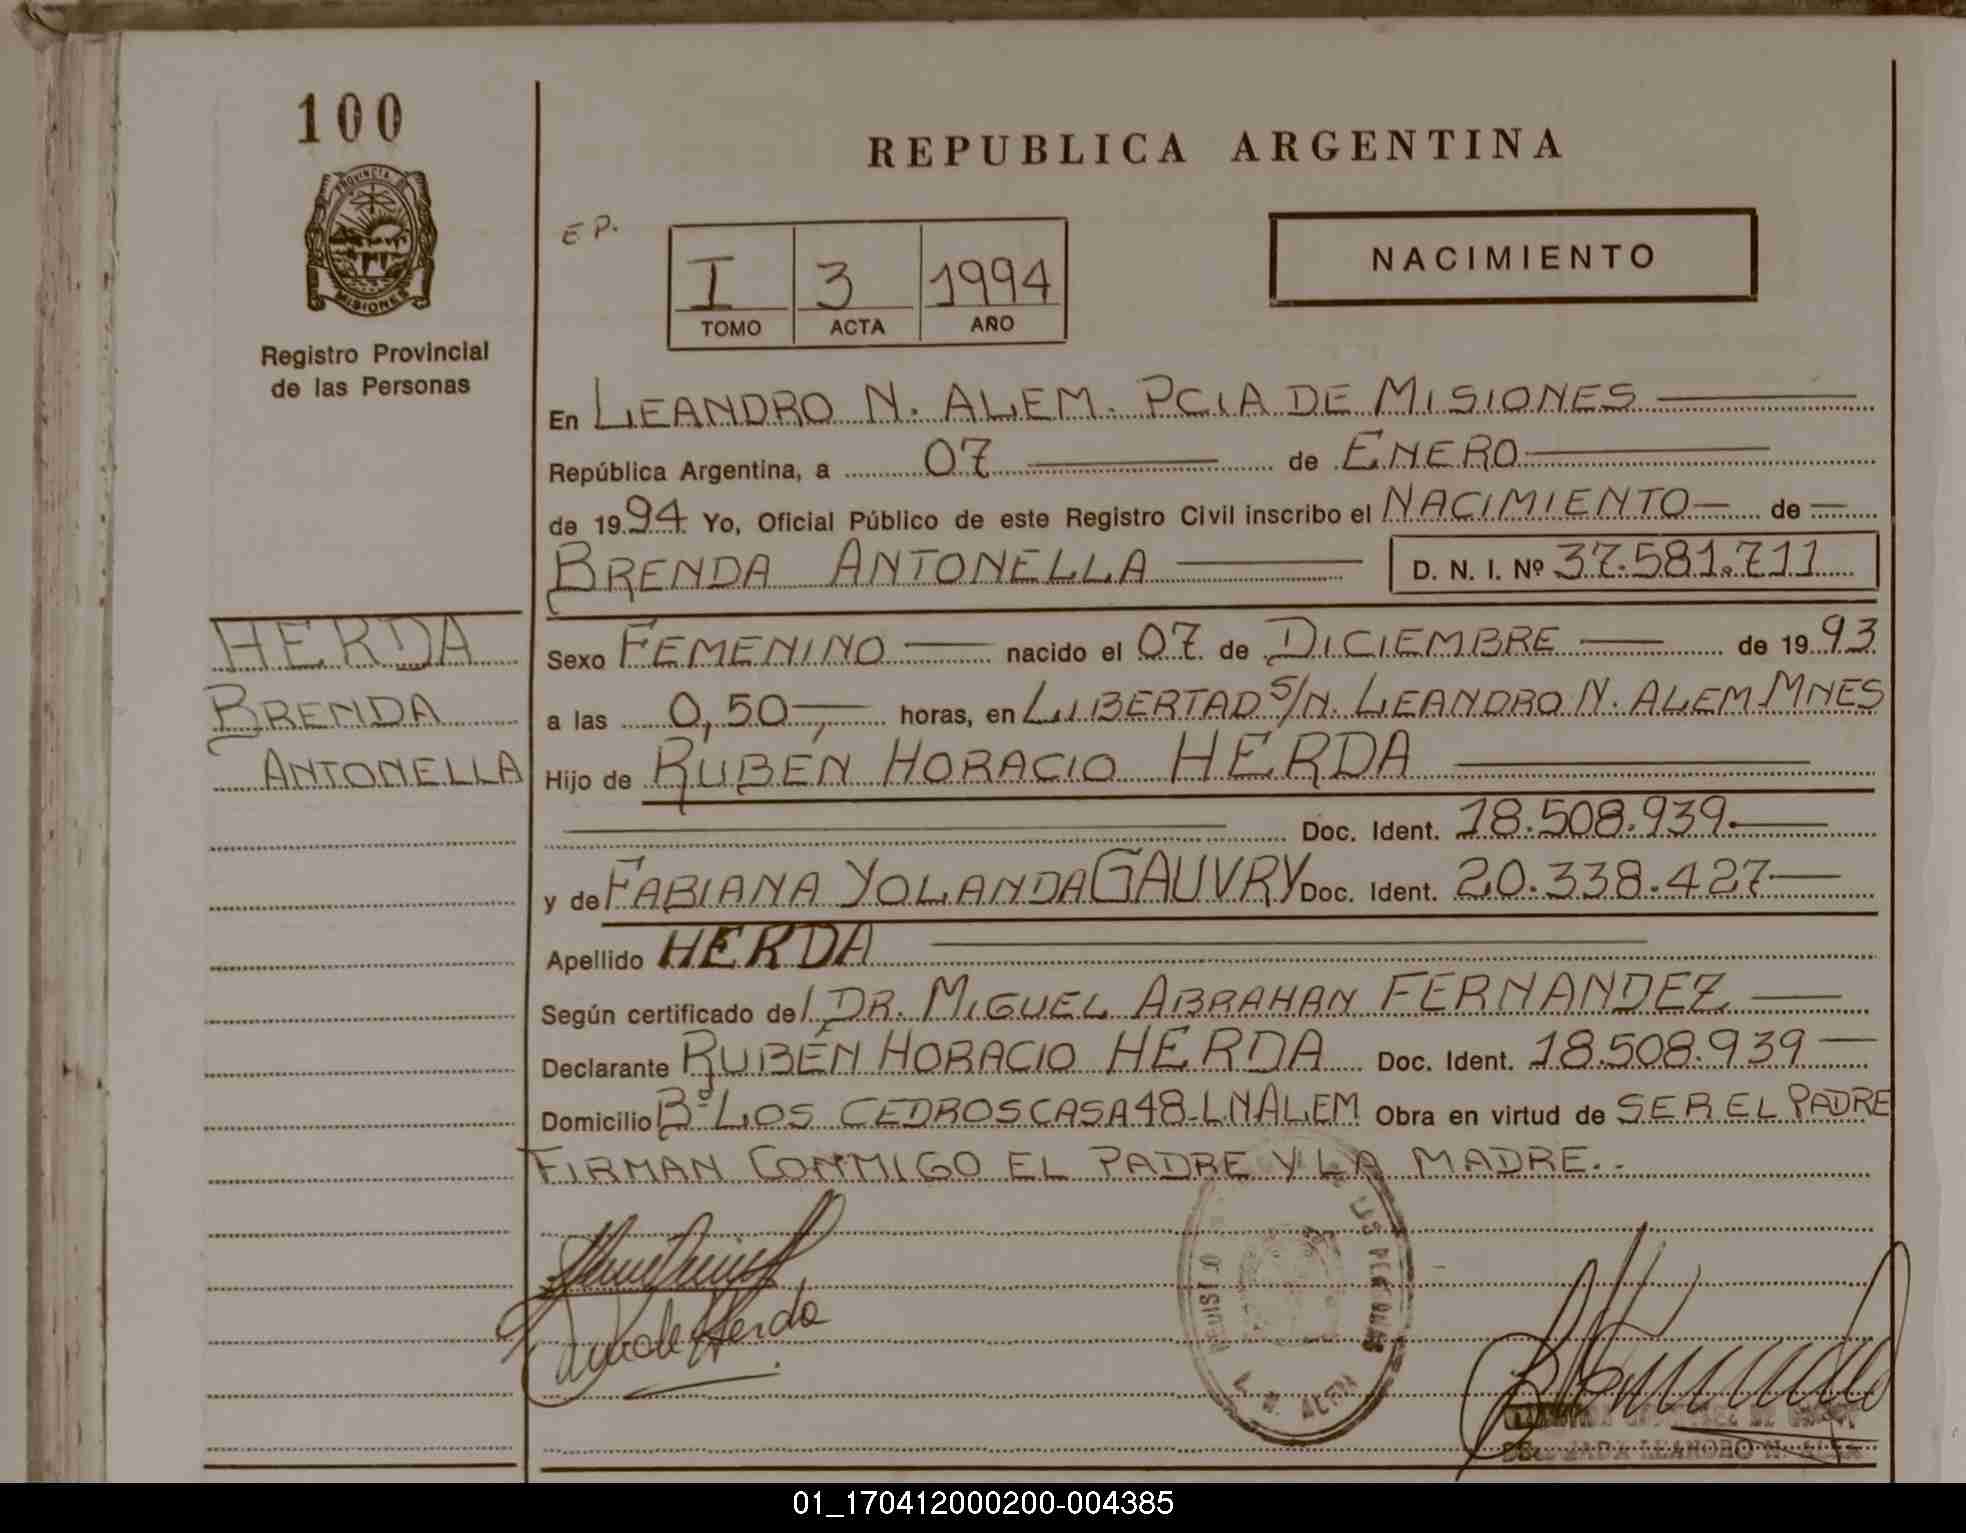 100
PROVINCIA DE
MISIONES
Registro Provincial
de las Personas
REPUBLICA ARGENTINA
E.P.
I 3 1994
TOMO ACTA AÑO
NACIMIENTO
En LEANDRO N. ALEM. PCIA DE MISIONES
República Argentina, a 07 de ENERO
de 1994 Yo, Oficial Público de este Registro Civil inscribo el NACIMIENTO de
BRENDA ANTONELLA D. N. I. Nº 37.581.711
HERDA
BRENDA
ANTONELLA
Sexo FEMENINO nacido el 07 de DICIEMBRE de 1993
a las 0,50 horas, en LIBERTAD S/N. LEANDRO N. ALEM MNES
Hijo de RUBÉN HORACIO HERDA
Doc. Ident. 18.508.939.
y de FABIANA YOLANDA GAUVRY Doc. Ident. 20.338.427
Apellido HERDA
Según certificado del DR. MIGUEL ABRAHAN FERNANDEZ
Declarante RUBÉN HORACIO HERDA Doc. Ident. 18.508.939
Domicilio Bº LOS CEDROS CASA 48-L.N.ALEM Obra en virtud de SER EL PADRE
FIRMAN CONMIGO EL PADRE Y LA MADRE..
de Herda
LAS PERSONAS
L. N. ALEM
LEANDRO N. ALEM
01_170412000200-004385